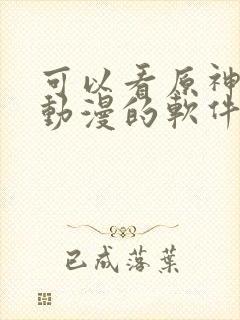 可以看原神
動漫的軟件
已成落葉